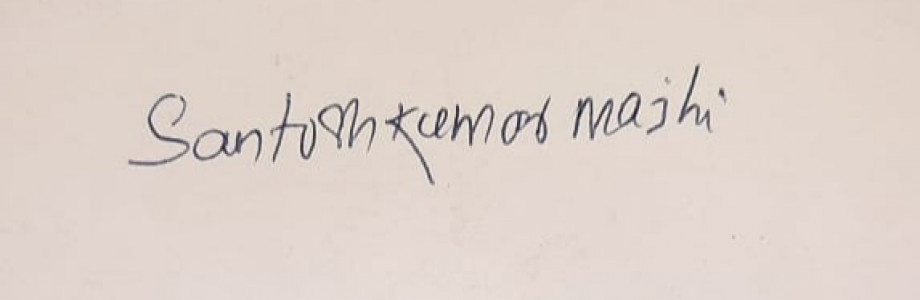 Santosh Kumar Majhi